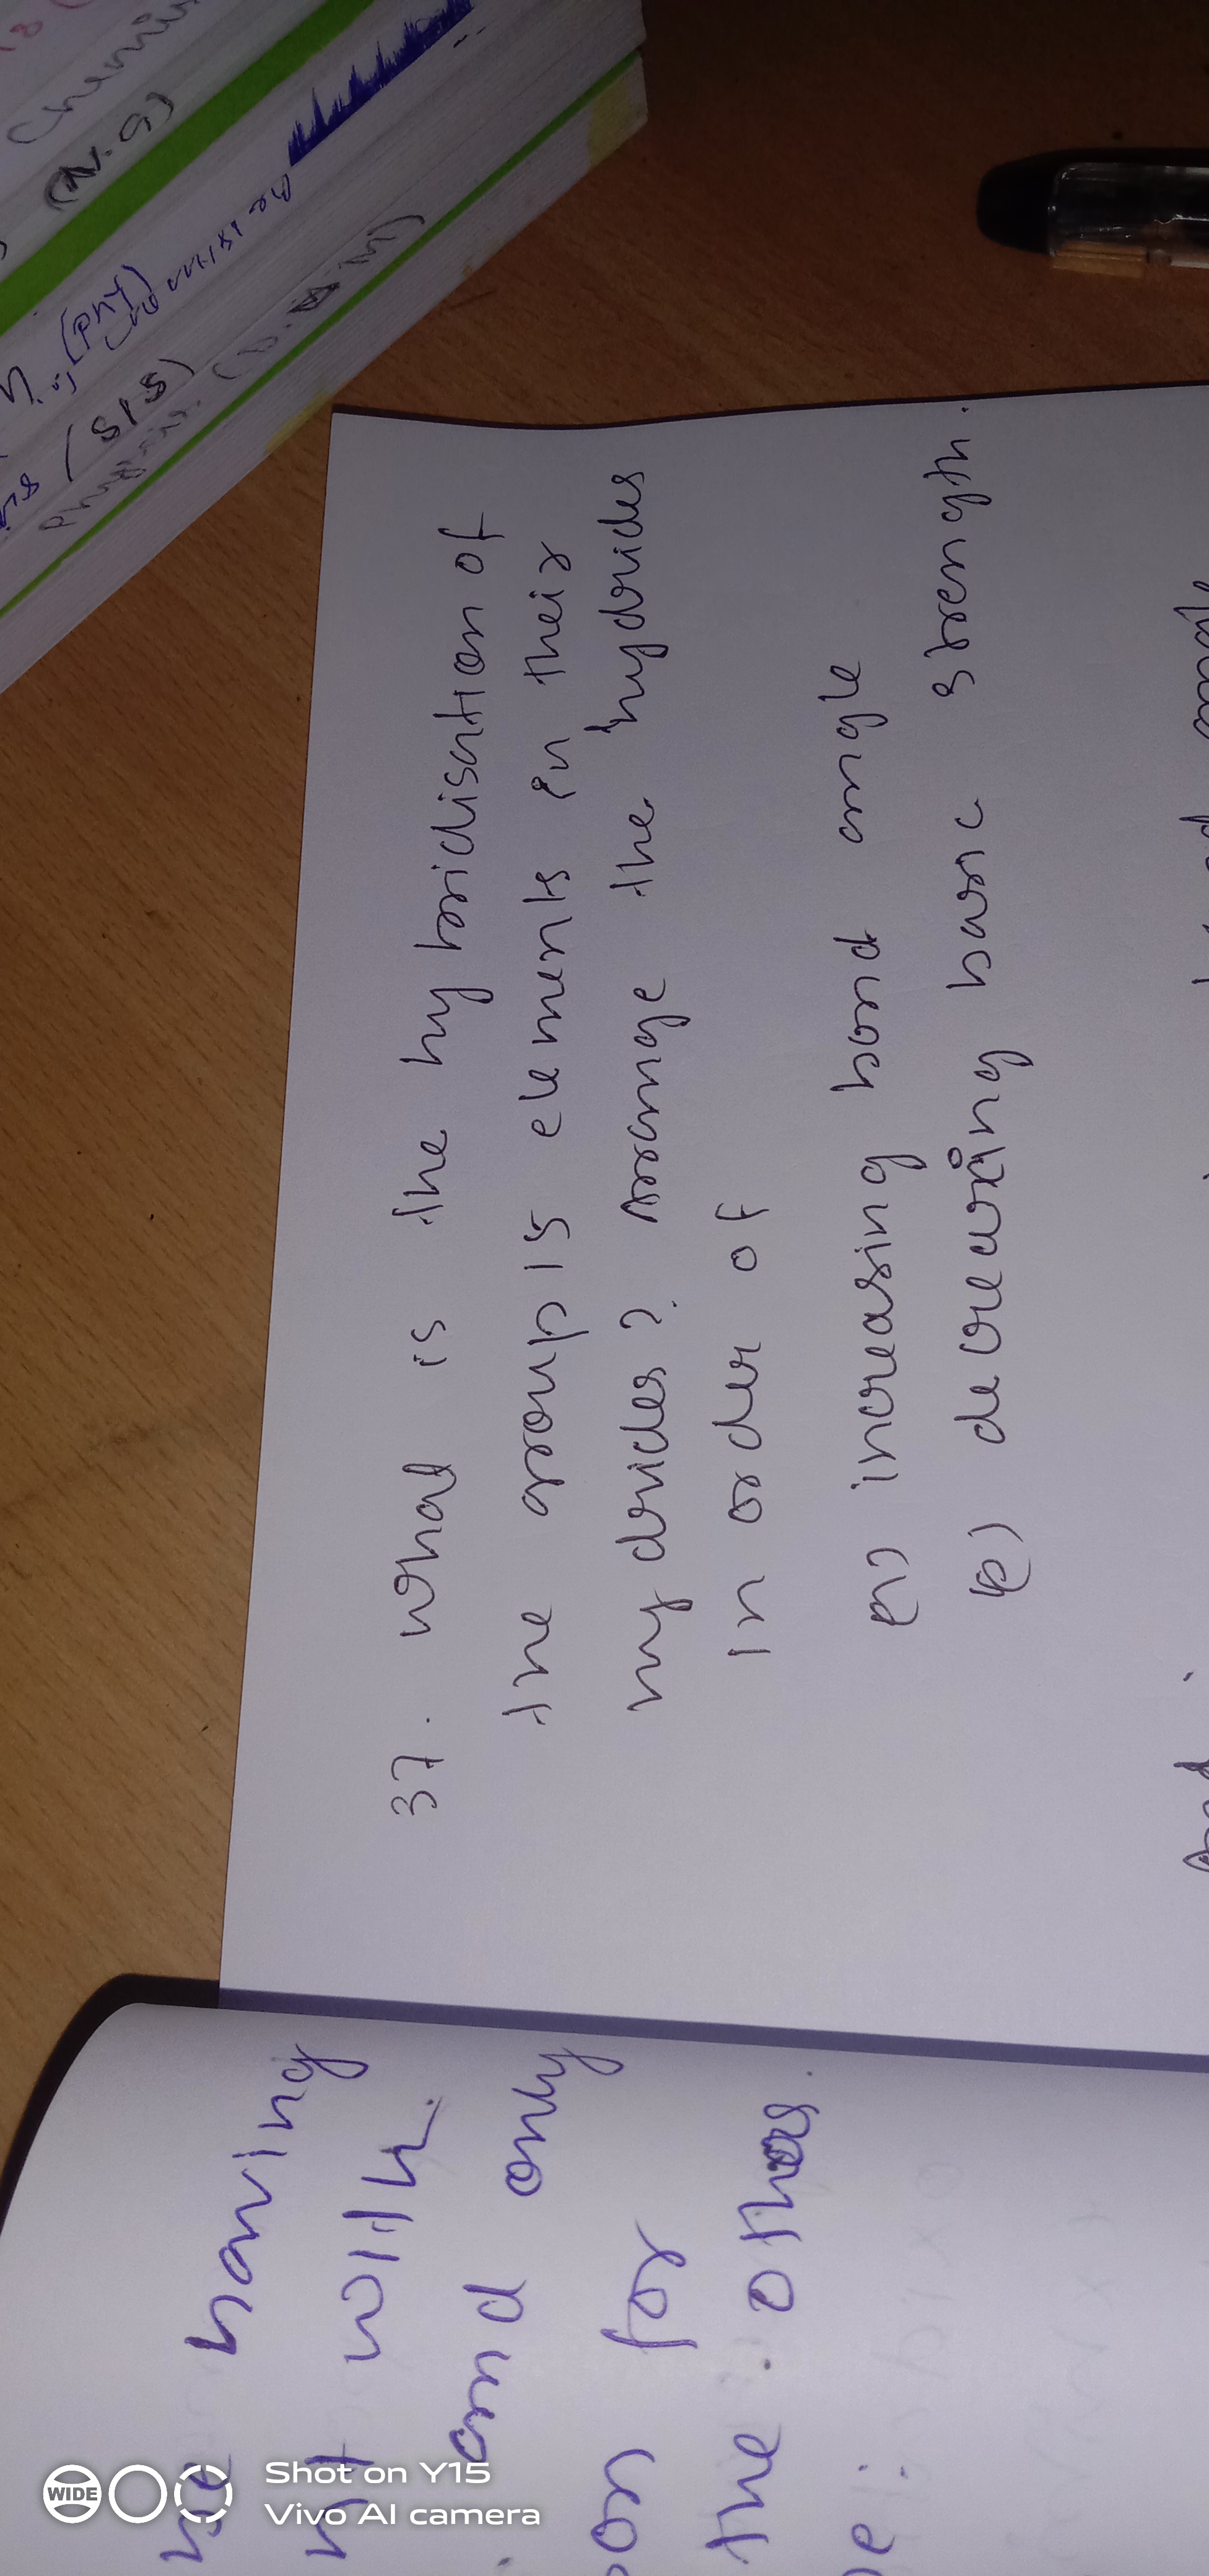 37. what is the hybridisation of
the group 15 elements in their
hydrides? arrange the hydrides
in order of
A) increasing bond angle
B) decreasing basic strength.
having
with
and only
for
the others.
Chemis
(N.G)
(Hyd)
(S/S)
WIDE
Shot on Y15
Vivo AI camera